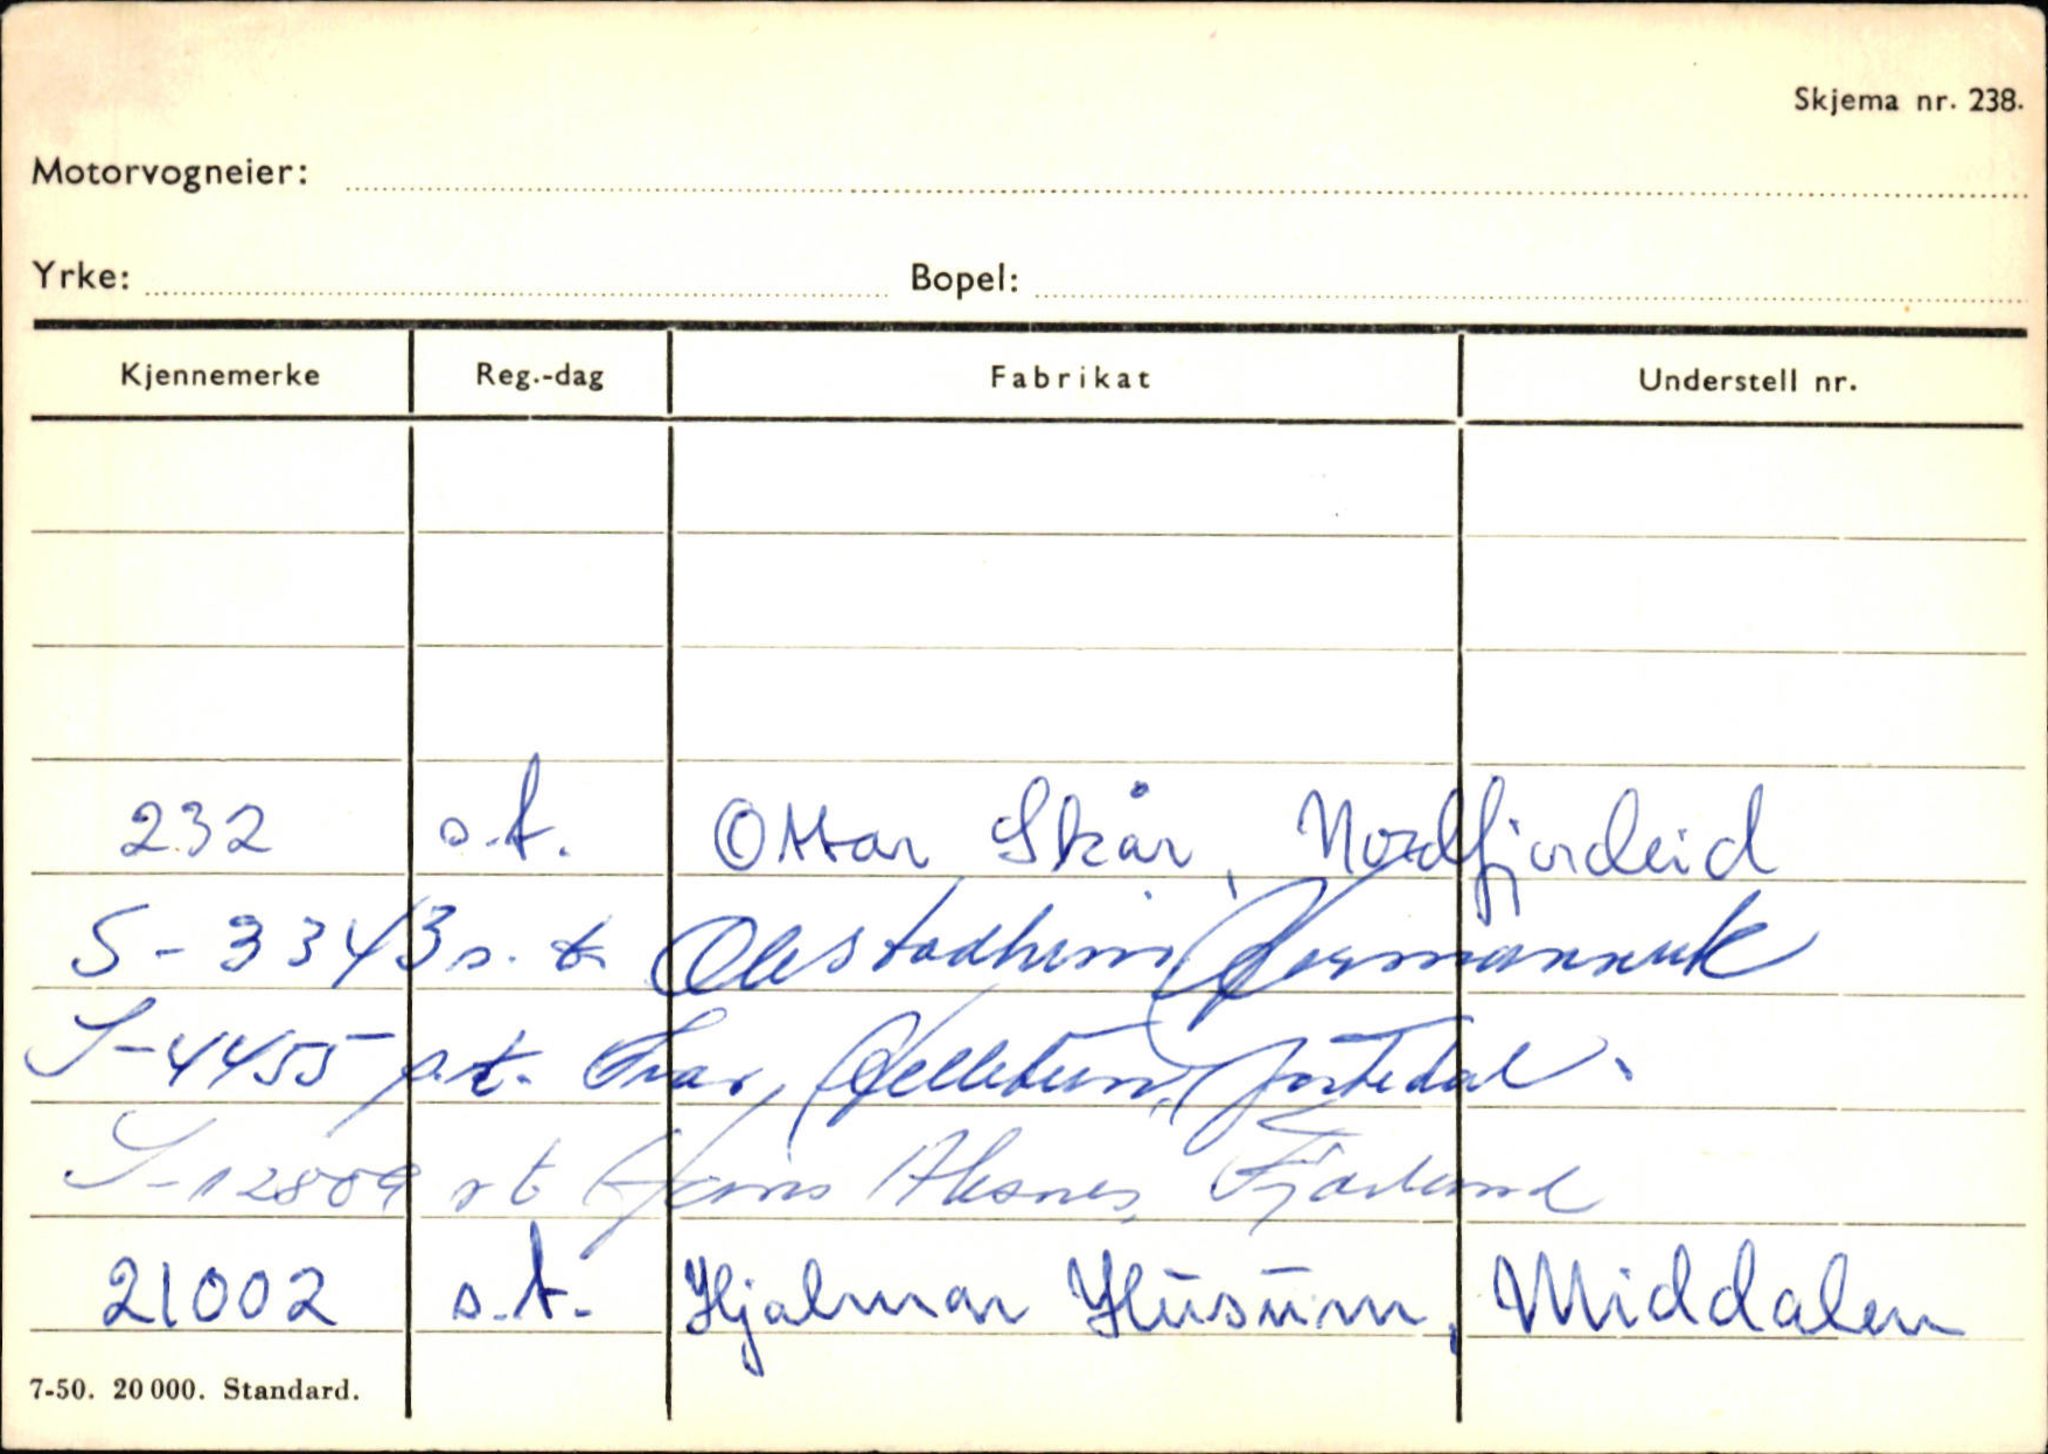 Skjema nr. 238.
Motorvogneier:
Yrke: Bopel:
Kjennemerke Reg.-dag Fabrikat Understell nr.
232 s.t. Ottar Skår, Nordfjordeid
S-3343 s.t. Ole Stadheim, Hermansverk
S-4455 s.t. Ivar Kelletun, Jostedal.
S-12889 s t Jens Alsnes, Fjærland
21002 s.t. Hjalmar Husum, Middalen
7-50. 20 000. Standard.